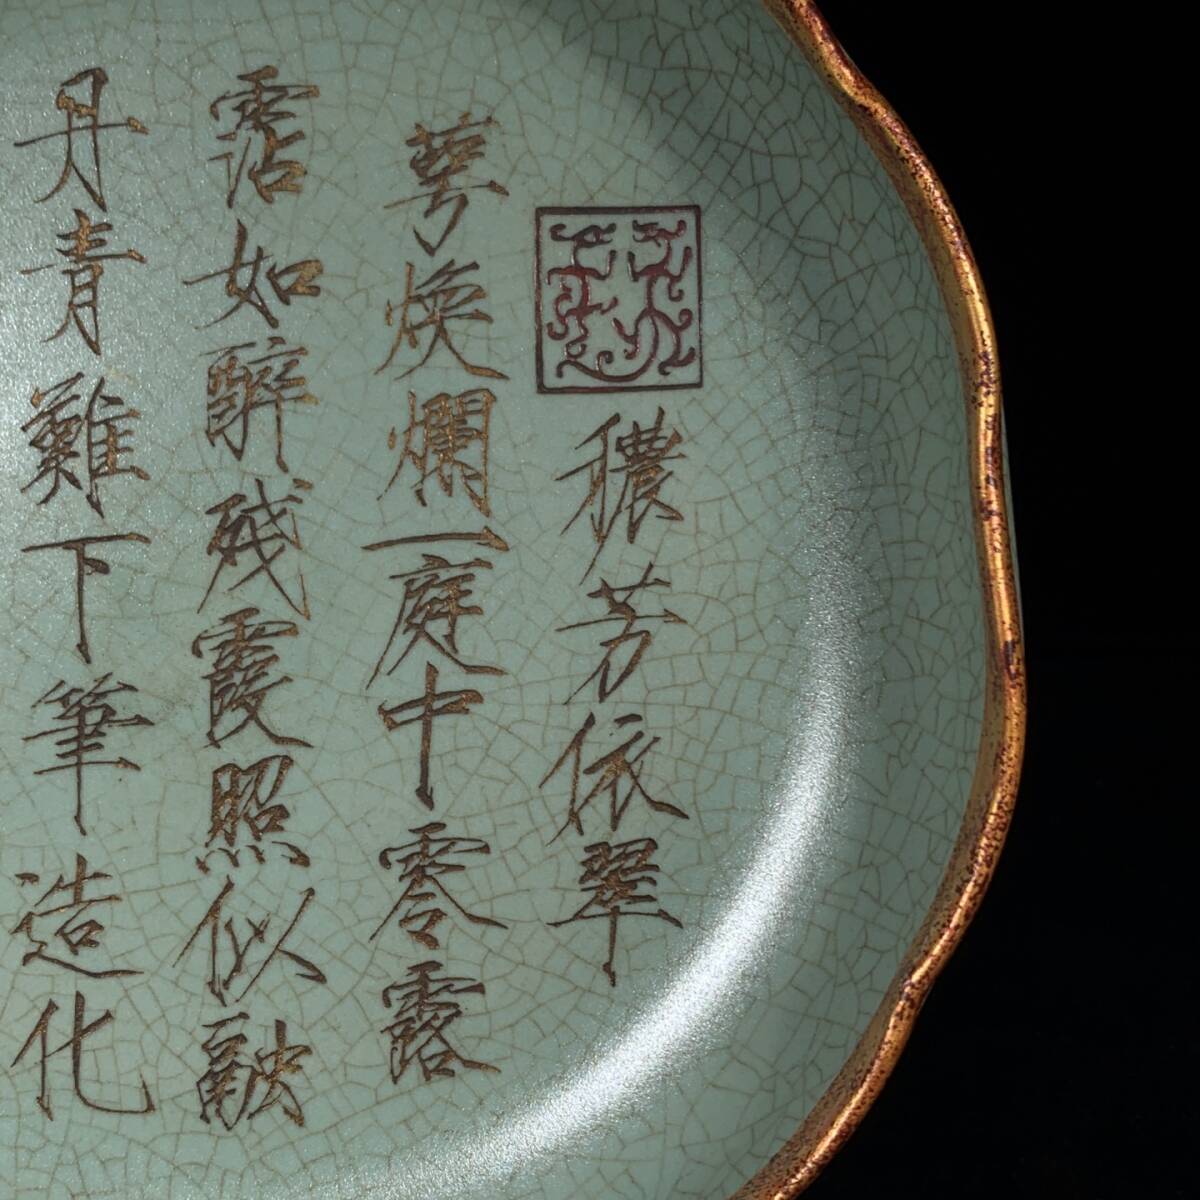 穠芳依翠
萼煥爛一庭中零露
霑如醉殘霞照似融
丹青難下筆造化